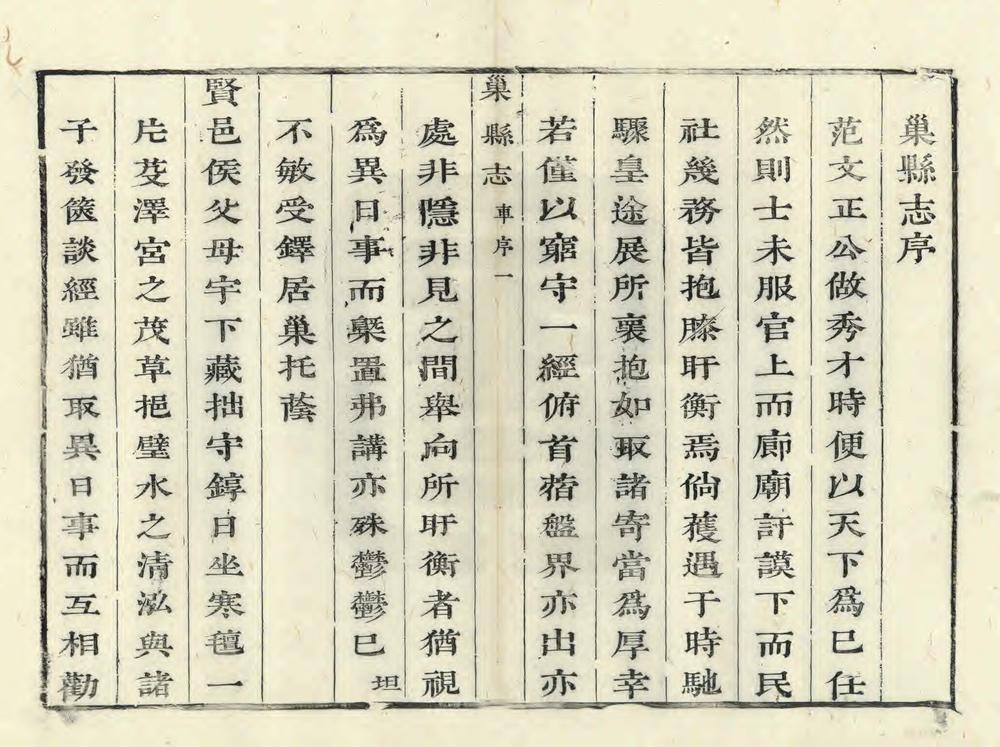 巢縣志序
范文正公做秀才時便以天下爲已任
然則士未服官上而廊廟訏謨下而民
社幾務皆抱膝盱衡焉倘獲遇于時馳
驟皇途展所褱抱如取諸寄當爲厚幸
若僅以窮守一經俯首䓪盤界亦出亦
巢縣志 車序 一
處非隱非見之間舉向所盱衡者猶視
爲異日事而槩置弗講亦殊鬱鬱巳 坦
不敏受鐸居巢托蔭
賢邑侯父母宇下藏拙守錞日坐寒氊一
片芟澤宮之茂草挹璧水之清泓與諸
子發篋談經雖猶取異日事而互相勸